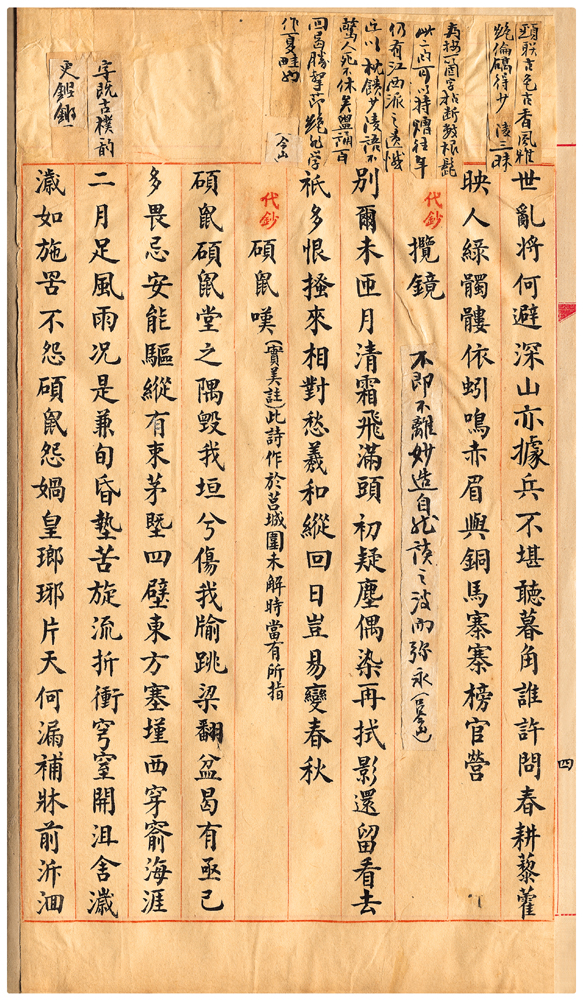 頸聯古色古香風雅
絕倫碣得少陵三昧
世亂將何避深山亦據兵不堪聽暮角誰許問春耕藜藿
映人綠髑髏依蚓鳴赤眉與銅馬寨寨榜官營
代鈔
攬鏡
不即不離妙造自然讀之波瀾弥永(
別爾未匝月清霜飛滿頭初疑塵偶染再拭影還留看去
祇多恨搔來相對愁羲和縱回日豈易變春秋
仍有江西派之遺憾
近以枕饋少陵語不
驚人死不休矣盥誦百
回曷勝擊節絕
作夏畦
(今山
代鈔
碩鼠嘆(實美註)此詩作於莒城圍未解時當有所指
碩鼠碩鼠堂之隅毀我垣兮傷我牏跳梁翻盆曷有亟已
多畏忌安能驅縱有束茅墍四壁東方塞墐西穿窬海涯
字既古樸韵
更鏗鏘
二月足風雨況是兼旬昏墊苦旋流折衝穹窒開沮舍濊
濊如施罟不怨碩鼠怨媧皇瑯琊片天何漏補牀前泝洄
四